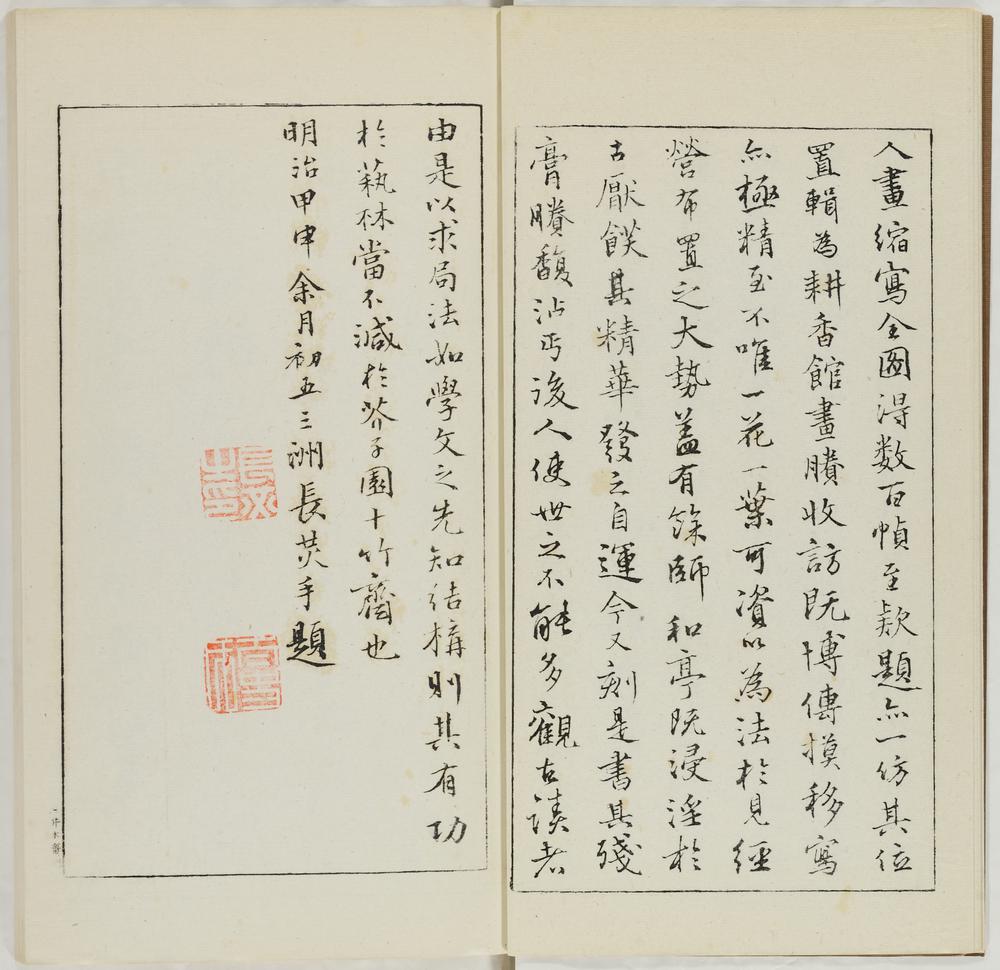 人畫縮寫全圖得数百幀至款題亦一仿其位
置輯為耕香館畫賸收訪既博傳摸移寫
亦極精至不唯一花一葉可資以為法於見經
營布置之大勢盖有餘師和亭既浸淫於
古厭飫其精華發之自運今又刻是書其殘
膏賸馥沾丐後人使世之不能多觀古蹟者
由是以求局法如學文之先知结構則其有功
於藝林當不減於芥子園十竹齋也
明治甲申余月初五三洲長炗手題
長炗
之印